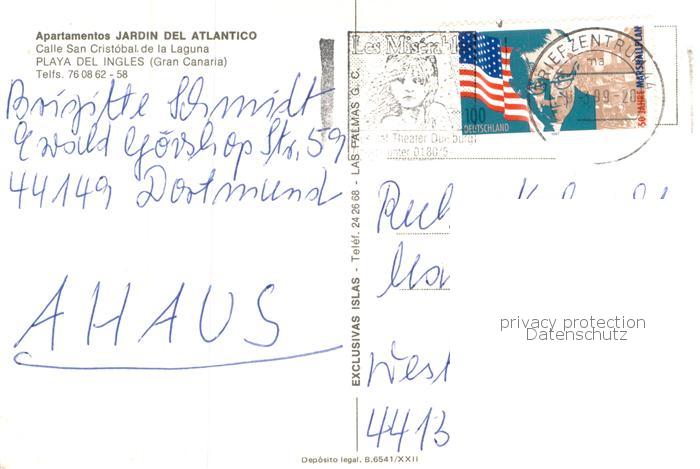 Apartamentos JARDIN DEL ATLANTICO
Calle San Cristóbal de la Laguna
PLAYA DEL INGLES (Gran Canaria)
Telfs. 76 08 62 - 58
Brigitte Schmidt
Ewald Görshop Str. 59
44149 Dortmund
AHAUS
EXCLUSIVAS ISLAS - Teléf. 24 26 68 - LAS PALMAS G. C.
Depósito legal. B.6541/XXII
Les Misérables
Theater Duisburg
0180/5
BRIEFZENTRUM
100
DEUTSCHLAND
50 JAHRE MARSHALLPLAN
1997
West
4413
privacy protection
Datenschutz